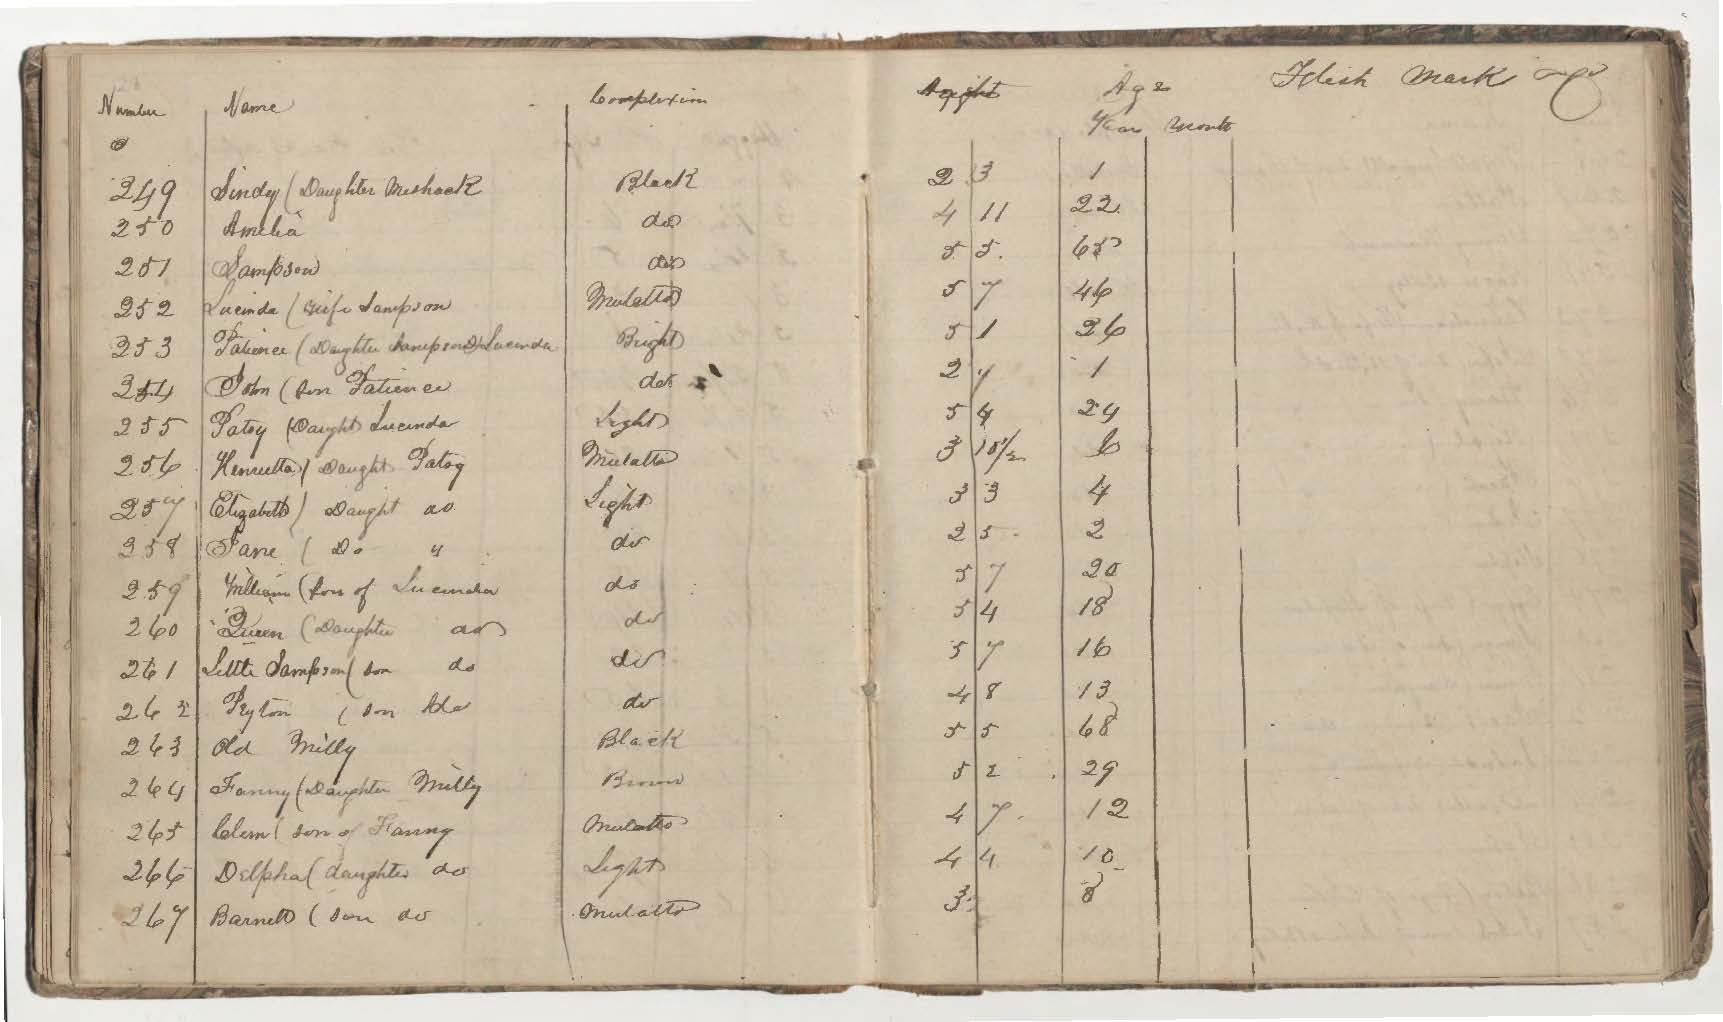 Number Name Complexion Height Age Flesh Mark &c
Year Month
249 Sindy (Daughter Meshack Black 2 3 1
250 Amelia do 4 11 22
251 Sampson do 5 5. 65
252 Lucinda (Wife Sampson Mulatto 5 7 46
253 Patience (Daughter Sampson & Lucinda Bright 5 1 26
254 John (son Patience do 2 7 1
255 Patsy (Daught Lucinda Light 5 4 24
256 Henrietta (Daught Patsy Mulatto 3 10 1/2 6
257 Elizabeth (Daught do Light 3 3 4
258 Jane (Do " do 2 5 2
259 William (son of Lucinda do 5 7 20
260 Queen (Daughter do do 5 4 18
261 Little Sampson (son do do 5 7 16
262 Peyton (son do do 4 8 13
263 Old Milly Black 5 5 68
264 Fanny (Daughter Milly Brown 5 2 29
265 Clem (son of Fanny Mulatto 4 7 12
266 Delpha (daughter do Light 4 4 10
267 Barnett (son do Mulatto 3 8